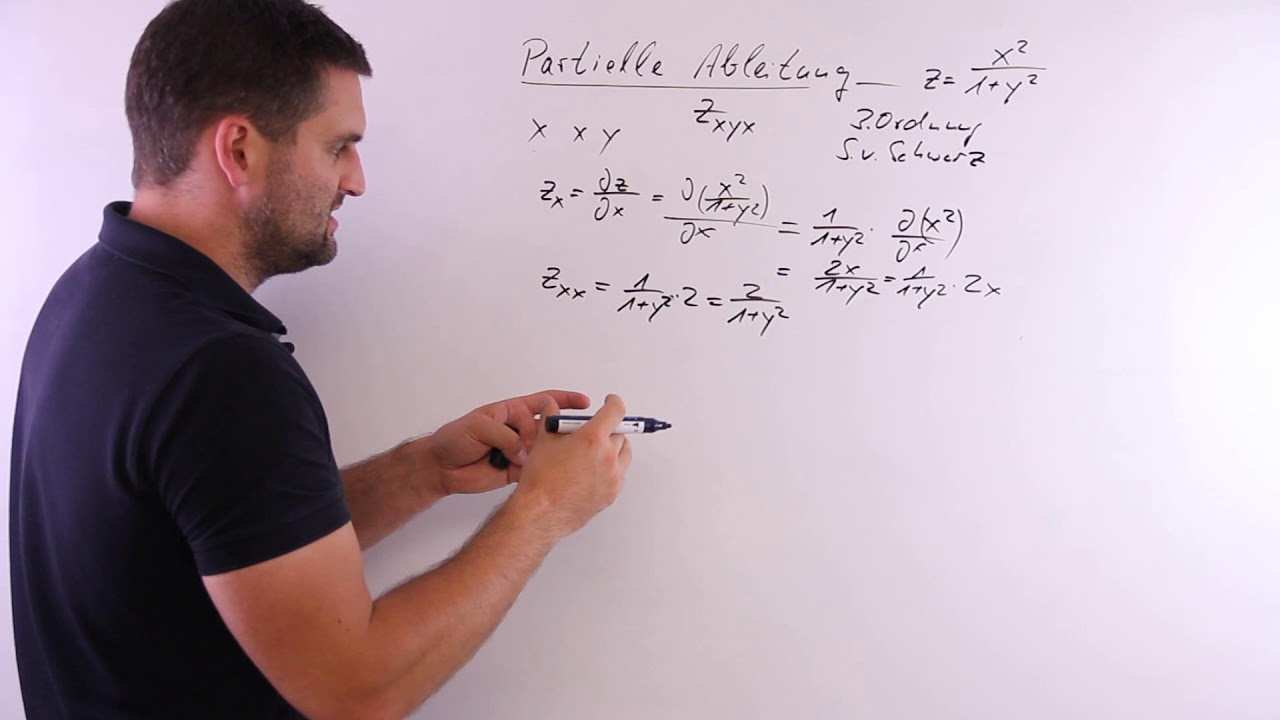 Partielle Ableitung z = x²/(1+y²)
z_xyx 3. Ordnung
x x y S. v. Schwarz
z_x = ∂z/∂x = ∂(x²/(1+y²))/∂x = 1/(1+y²) · ∂(x²)/∂x
= 2x/(1+y²) = 1/(1+y²) · 2x
z_xx = 1/(1+y²) · 2 = 2/(1+y²)